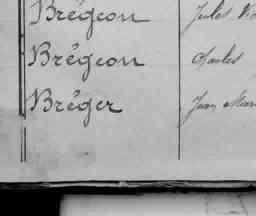 Brégeon Jules
Brégeon Charles
Bréger Jean